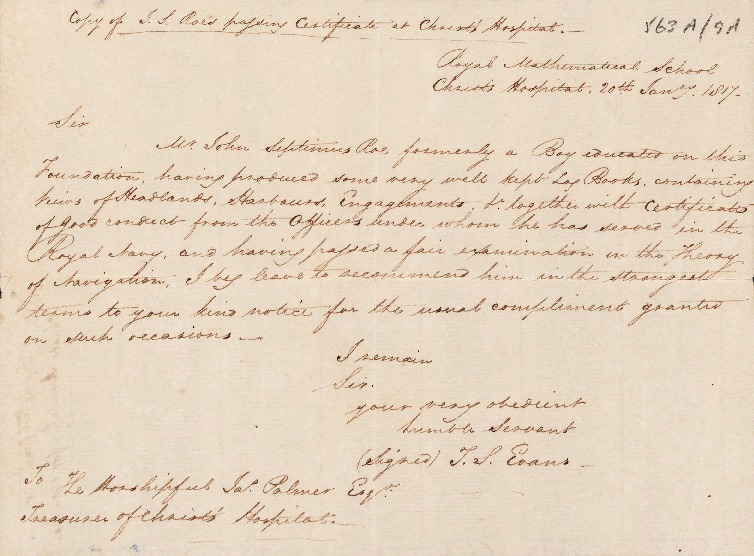 Copy of J. S. Roe's passing Certificate at Christ's Hospital. —
563 A/9A
Royal Mathematical School
Christ's Hospital. 20th Jany. 1817 –
Sir
Mr. John Septimus Roe, formerly a Boy educated on this
Foundation, having produced some very well kept Log Books, containing
Views of Headlands, Harbours, Engagements, &c. together with Certificates
of good conduct from the Officers under whom he has served in the
Royal Navy, and having passed a fair examination in the Theory
of Navigation, I beg leave to recommend him in the strongest
terms to your kind notice for the usual compliment granted
on such occasions —
I remain
Sir.
your very obedient
humble Servant
(Signed) T. S. Evans –
To The Worshipful Jas. Palmer Esqr.
Treasurer of Christ's Hospital. —